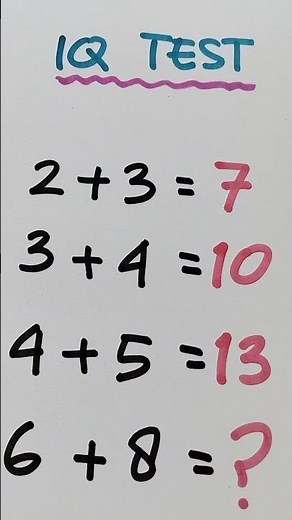 IQ TEST
2 + 3 = 7
3 + 4 = 10
4 + 5 = 13
6 + 8 = ?